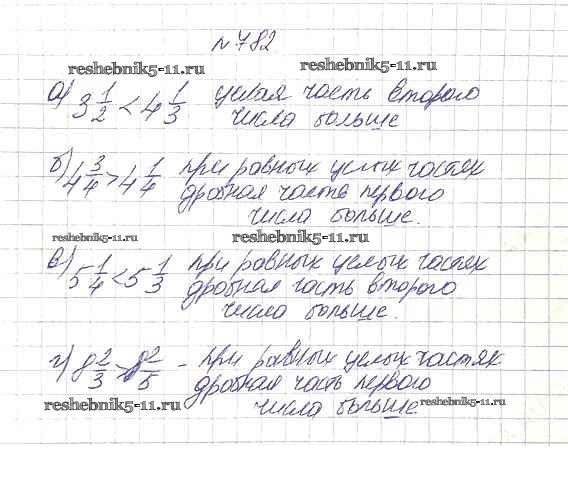 №782
reshebnik5-11.ru reshebnik5-11.ru
а) 3 1/2 < 4 1/3 целая часть второго
числа больше
б) 4 3/4 > 4 1/4 при равных целых частях
дробная часть первого
числа больше.
reshebnik5-11.ru reshebnik5-11.ru
в) 5 1/4 < 5 1/3 при равных целых частях
дробная часть второго
числа больше.
г) 8 2/3 > 8 2/5 - при равных целых частях
дробная часть первого
reshebnik5-11.ru числа больше. reshebnik5-11.ru